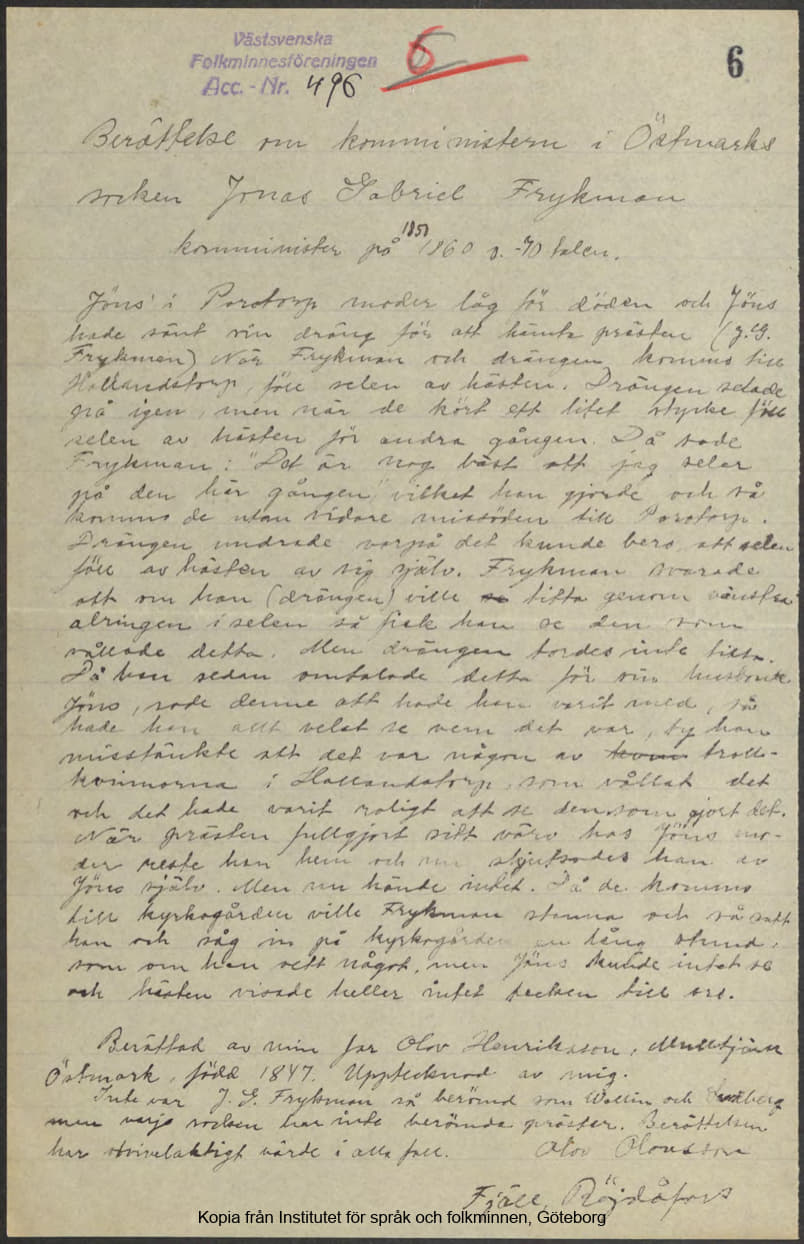 Västsvenska
Folkminnesföreningen
Acc.-Nr. 496
5
6
Berättelse om komministern i Östmarks
socken Jonas Gabriel Frykman
komminister på 1850 1860 o. -70 talen.
Jöns' i Porotorp moder låg för döden och Jöns
hade sänt sin dräng för att hämta prästen (J. G.
Frykman) När Frykman och drängen kommo till
Hollandstorp, föll selen av hästen. Drängen selade
på igen, men när de kört ett litet stycke föll
selen av hästen för andra gången. Då sade
Frykman: "Det är nog bäst att jag selar
på den här gången" vilket han gjorde och så
kommo de utan vidare missöden till Porotorp.
Drängen undrade varpå det kunde bero att selen
föll av hästen av sig själv. Frykman svarade
att om han (drängen) ville titta genom vänstra
alringen i selen så fick han se den som
vållade detta. Men drängen tordes inte titta.
Då han sedan omtalade detta för sin husbonde
Jöns, sade denne att hade han varit med, så
hade han allt velat se vem det var, ty han
misstänkte att det var någon av troll-
kvinnorna i Hollandstorp, som vållat det
och det hade varit roligt att se den som gjort det.
När prästen fullgjort sitt värv hos Jöns mo-
der reste han hem och nu skjutsades han av
Jöns själv. Men nu hände intet. Då de kommo
till kyrkogården ville Frykman stanna och så satt
han och såg in på kyrkogården en lång stund,
som om han sett något, men Jöns kunde intet se
och hästen visade heller intet tecken till oro.
Berättad av min far Olov Henriksson, Mulltjärn
Östmark, född 1847. Upptecknad av mig.
Inte var J. G. Frykman så berömd som Wallin och
men varje socken har inte berömda präster. Berättelsen
har otvivelaktigt värde i alla fall. Olov Olovsson
Fjäll, Röjdåfors
Kopia från Institutet för språk och folkminnen, Göteborg